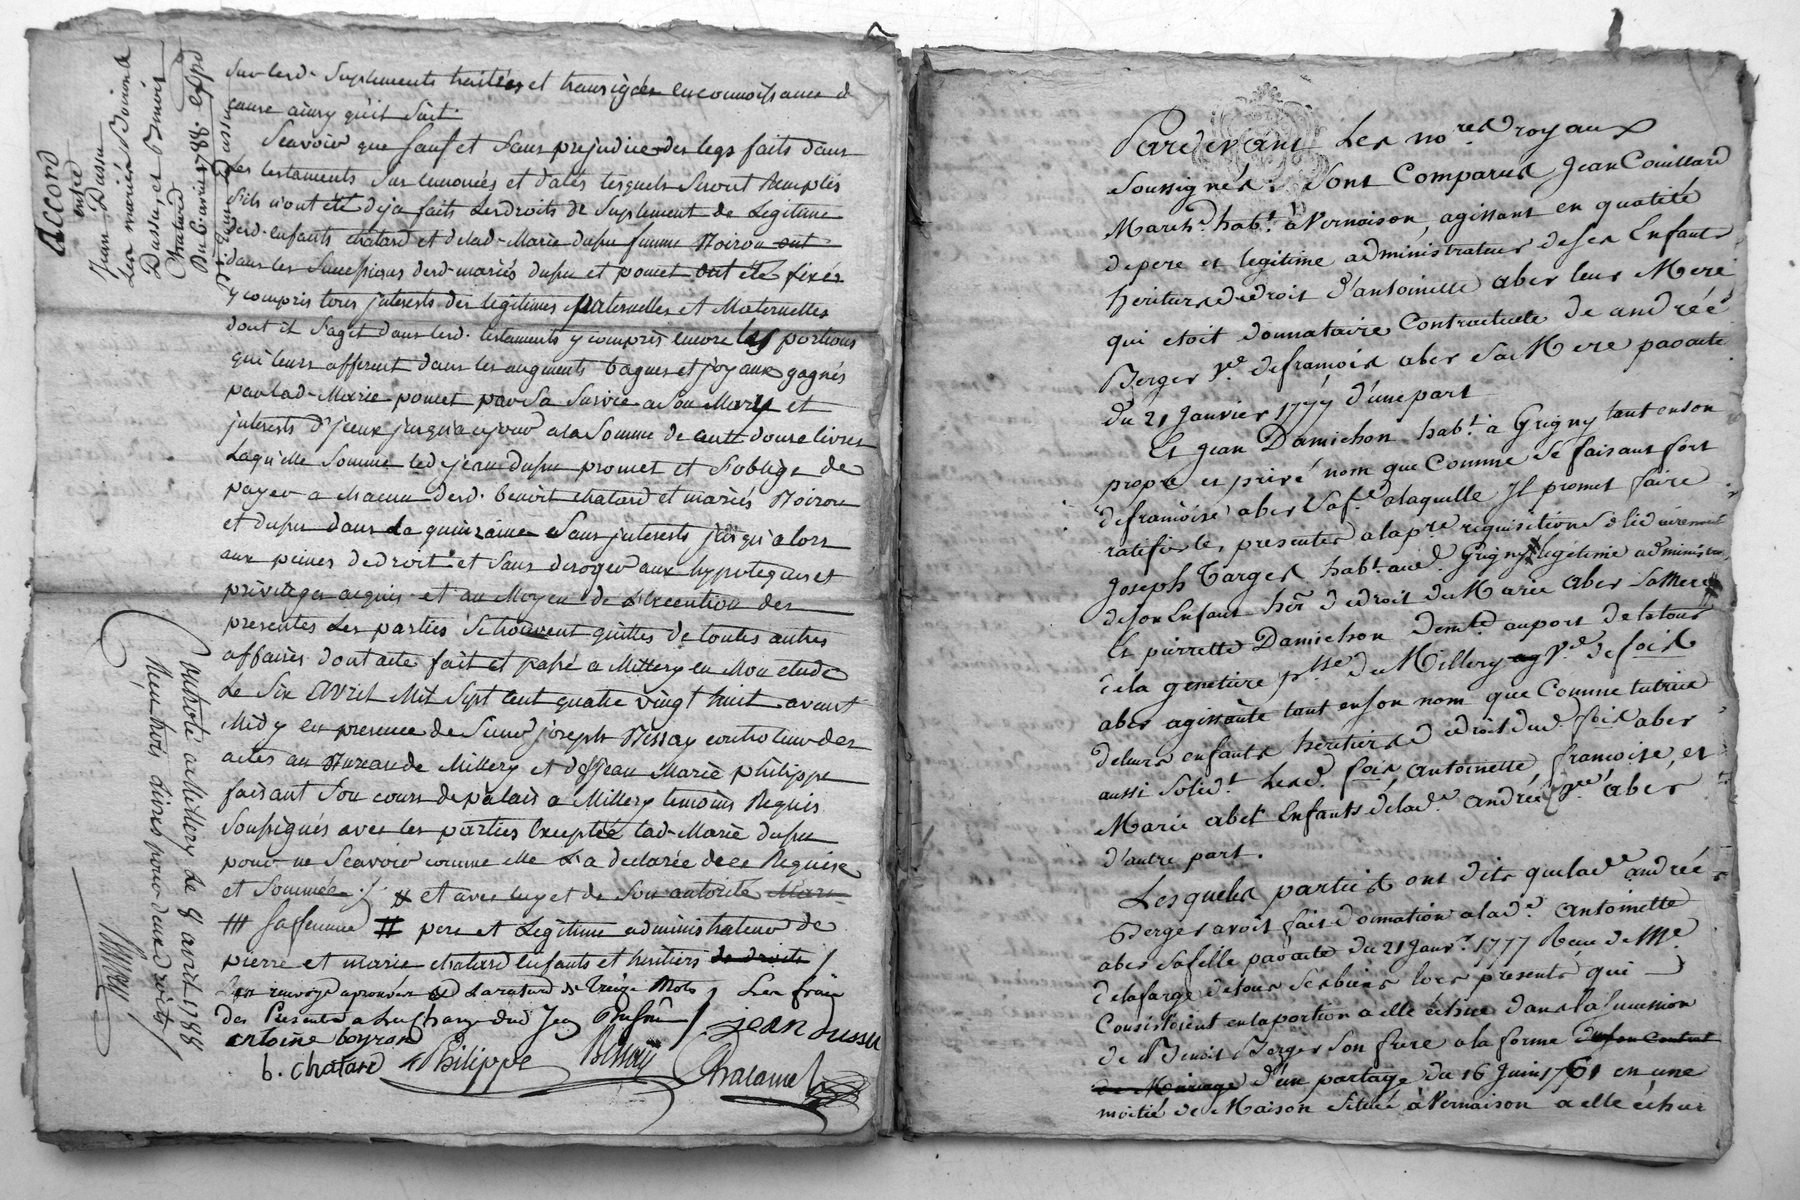 Accord
entre
Jean Dussu
Les mariés Boiron &
Dussu, et benoit
Chatard
Du 6 avril 1788. Expé
pr. Jean Dussu
sur lesd. Suplements traittés et transigés en connoissance de
cause ainsy qu'il suit
Scavoir que sauf et sans prejudice des legs faits dans
les testaments sus enoncés et datés lesquels seront Remplis
s'ils n'ont été deja faits les droits de Suplement de Legitime
desd. enfants chatard et de lad. Marie dusu femme Boiron ont
dans les Successions desd. mariés dusu et poncet ont été fixés
y compris tous interests des legitimes paternelles et Maternelles
dont il s'agit dans lesd. testaments y compris encore les portions
qui leurs afferent dans les augments bagues et joyaux gagnés
par lad. Marie poncet par sa survie a son Mary et
interests d'jceux jusqu'a ce jour a la Somme de cent douze livres
Laquelle Somme led. jean dusu promet et s'oblige de
payer a chacun desd. benoit chatard et mariés Boiron
et dusu dans la quinzaine sans interests jusqu'alors
aux peines de droit et sans deroger aux hypoteques et
privileges acquis et au Moyen de l'Execution des
presentes Les parties se trouvent quittes de toutes autres
affaires dont acte fait et passé a Millery en Mon etude
Le Six avril Mil Sept cent quatre vingt huit avant
Midy en presence de Sieur joseph Bissay controleur des
actes au Bureau de Millery et de s. jean Marie philippe
faisant son cours de palais a Millery temoins Requis
soussignés avec les parties Exceptée lad. Marie dusu
pour ne Scavoir comme elle l'a declarée de ce Requise
et Sommée ./. # et avec luy et de son autorité
sa femme # pere et Legitime administrateur de
pierre et marie chatard enfants et heritiers de droits /
renvoys aprouvés la rature de treize Mots / Les frais
des Presentes a la Charge dud. Jean Dusu /. jean dussu
antoine boyron
b. chatard Philippe Bissay Chalamel
Controlé a Millery le 8 avril 1788
Reçu trois livres pour deux droits
Bissay
Pardevant Les nores. royaux
soussignés. Sont Comparus Jean Couillard
March. habt. à Vernaison, agissant en qualité
de pere et legitime administrateur de ses Enfants
heritiers de droit d'antoinette aber leur Mere
qui etoit donnataire Contractuele de andréé
Berger ve. de francois aber sa Mere par acte
du 21 Janvier 1777 d'une part
Et Jean Damichon habt. à Grigny tant en son
propre et privé nom que comme se faisant fort
de francoise aber sa fe. a laquelle Il promet faire
ratifier les presentes a la pre. requisition Solidairement
Joseph Targes habt. aud. Grigny legitime administra
de son Enfant her. de droit de Marie aber sa Mere
Et pierrette Damichon demte. au port de la tour
de la genetiere psse. de Millery ve. de foix
aber agissante tant en son nom que comme tutrice
de leurs enfants heritiers de droit dud. foix aber
aussi solidt. Lesd. foix, antoinette, francoise, et
Marie aber Enfants de lad. andréé ve. aber
d'autre part.
Lesqueles parties ont dits que lad. andréé
Berger avoit fait donnation a lade. antoinette
aber sa fille par acte du 21 Janvr. 1777 Recu de Me.
delafarge de tous ses biens lors presents qui
Consistoient en la portion a elle échue dans la sucession
de Benoit Berger son frere a la forme de son Contrat
de Mariage d'un partage du 16 Juin 1761 en une
moitié de Maison située à Vernaison a elle échue